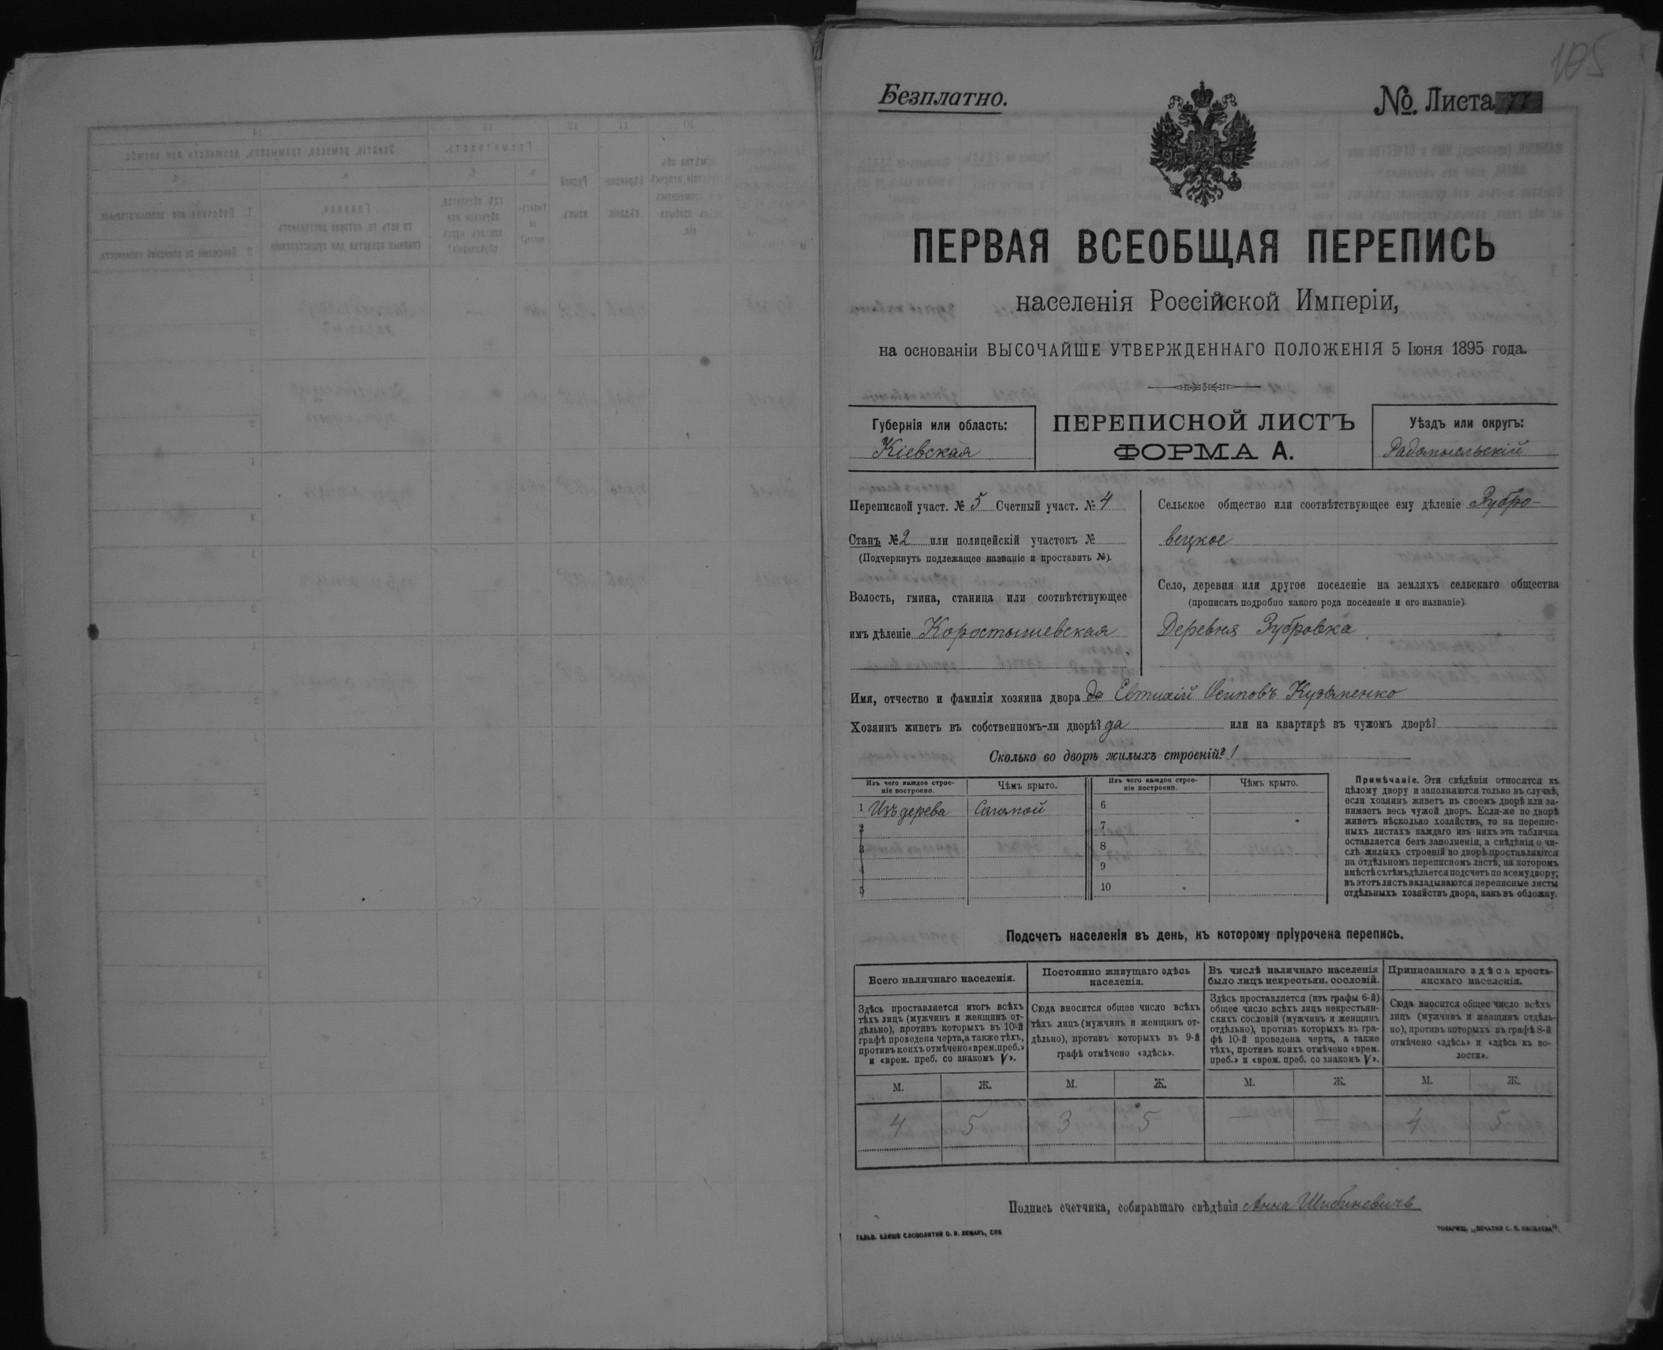 105
Безплатно.
№ Листа 77
ПЕРВАЯ ВСЕОБЩАЯ ПЕРЕПИСЬ
населенія Россійской Имперіи,
на основаніи ВЫСОЧАЙШЕ УТВЕРЖДЕННАГО ПОЛОЖЕНІЯ 5 Іюня 1895 года.
Губернія или область:
Кіевская
ПЕРЕПИСНОЙ ЛИСТЪ
ФОРМА А.
Уѣздъ или округъ:
Радомысльскій
Переписной участ. № 5 Счетный участ. № 4
Станъ № 2 или полицейскій участокъ №
(Подчеркнуть подлежащее названіе и проставить №).
Волость, гмина, станица или соотвѣтствующее
имъ дѣленіе Коростышевская
Сельское общество или соотвѣтствующее ему дѣленіе Зубро-
вецкое
Село, деревня или другое поселеніе на земляхъ сельскаго общества
(прописать подробно какого рода поселеніе и его названіе)
Деревня Зубровка
Имя, отчество и фамилія хозяина двора Евтихій Осиповъ Кузьменко
Хозяинъ живетъ въ собственномъ-ли дворѣ? да или на квартирѣ въ чужомъ дворѣ?
Сколько во дворѣ жилыхъ строеній? 1
Изъ чего каждое строе-
ніе построено.
Чѣмъ крыто.
Изъ чего каждое строе-
ніе построено.
Чѣмъ крыто.
1 Изъ дерева Соломой
2
3
4
5
6
7
8
9
10
Примѣчаніе. Эти свѣдѣнія относятся къ
цѣлому двору и заполняются только въ случаѣ,
если хозяинъ живетъ въ своемъ дворѣ или за-
нимаетъ весь чужой дворъ. Если-же во дворѣ
живетъ нѣсколько хозяйствъ, то на перепис-
ныхъ листахъ каждаго изъ нихъ эта табличка
оставляется безъ заполненія, а свѣдѣнія о чи-
слѣ жилыхъ строеній во дворѣ проставляются
на отдѣльномъ переписномъ листѣ, на которомъ
вмѣстѣ съ тѣмъ дѣлается подсчетъ по всему двору;
въ этотъ листъ вкладываются переписные листы
отдѣльныхъ хозяйствъ двора, какъ въ обложку.
Подсчетъ населенія въ день, къ которому пріурочена перепись.
Всего наличнаго населенія.
Здѣсь проставляется итогъ всѣхъ
тѣхъ лицъ (мужчинъ и женщинъ от-
дѣльно), противъ которыхъ въ 10-й
графѣ проведена черта, а также тѣхъ,
противъ коихъ отмѣчено «врем. преб.»
и «врем. преб. со знакомъ V».
Постоянно живущаго здѣсь
населенія.
Сюда вносится общее число всѣхъ
тѣхъ лицъ (мужчинъ и женщинъ от-
дѣльно), противъ которыхъ въ 9-й
графѣ отмѣчено «здѣсь».
Въ числѣ наличнаго населенія
было лицъ некрестьян. сословій.
Здѣсь проставляется (изъ графы 6-й)
общее число всѣхъ лицъ некрестьян-
скихъ сословій (мужчинъ и женщинъ
отдѣльно), противъ которыхъ въ гра-
фѣ 10-й проведена черта, а также
тѣхъ, противъ коихъ отмѣчено «врем.
преб.» и «врем. преб. со знакомъ V».
Приписаннаго здѣсь кресть-
янскаго населенія.
Сюда вносится общее число всѣхъ
лицъ (мужчинъ и женщинъ отдѣль-
но), противъ которыхъ въ графѣ 8-й
отмѣчено «здѣсь» и «здѣсь въ во-
лости».
М. Ж. М. Ж. М. Ж. М. Ж.
4 5 3 5 — — 4 5
Подпись счетчика, собиравшаго свѣдѣнія Анна
ГАЛЬВ. КЛИШЕ СЛОВОЛИТНИ О. И. ЛЕМАНЪ, СПБ